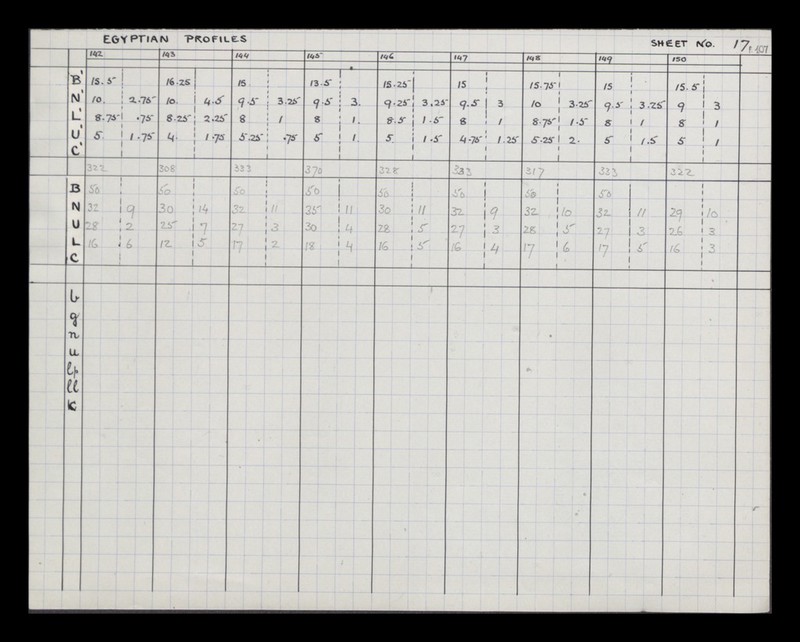 EGYPTIAN PROFILES SHEET NO. 17
142 143 144 145 146 147 148 149 150
B' 15.5 16.25 15 13.5 15.25 15 15.75 15 15.5
N' 10. 2.75 10. 4.5 9.5 3.25 9.5 3. 9.25 3.25 9.5 3 10 3.25 9.5 3.25 9 3
L' 8.75 .75 8.25 2.25 8 1 8 1. 8.5 1.5 8 1 8.75 1.5 8 1 8 1
U' 5 1.75 4. 1.75 5.25 .75 5 1. 5. 1.5 4.75 1.25 5.25 2. 5 1.5 5 1
C'
322 308 333 370 328 333 317 333 322
B 50 50 50 50 50 50 50 50
N 32 9 30 14 32 11 35 11 30 11 32 9 32 10 32 11 29 10
U 28 2 25 7 27 3 30 4 28 5 27 3 28 5 27 3 26 3
L 16 6 12 5 17 2 18 4 16 5 16 4 17 6 17 5 16 3
C
b
g
n
u
lp
ll
c